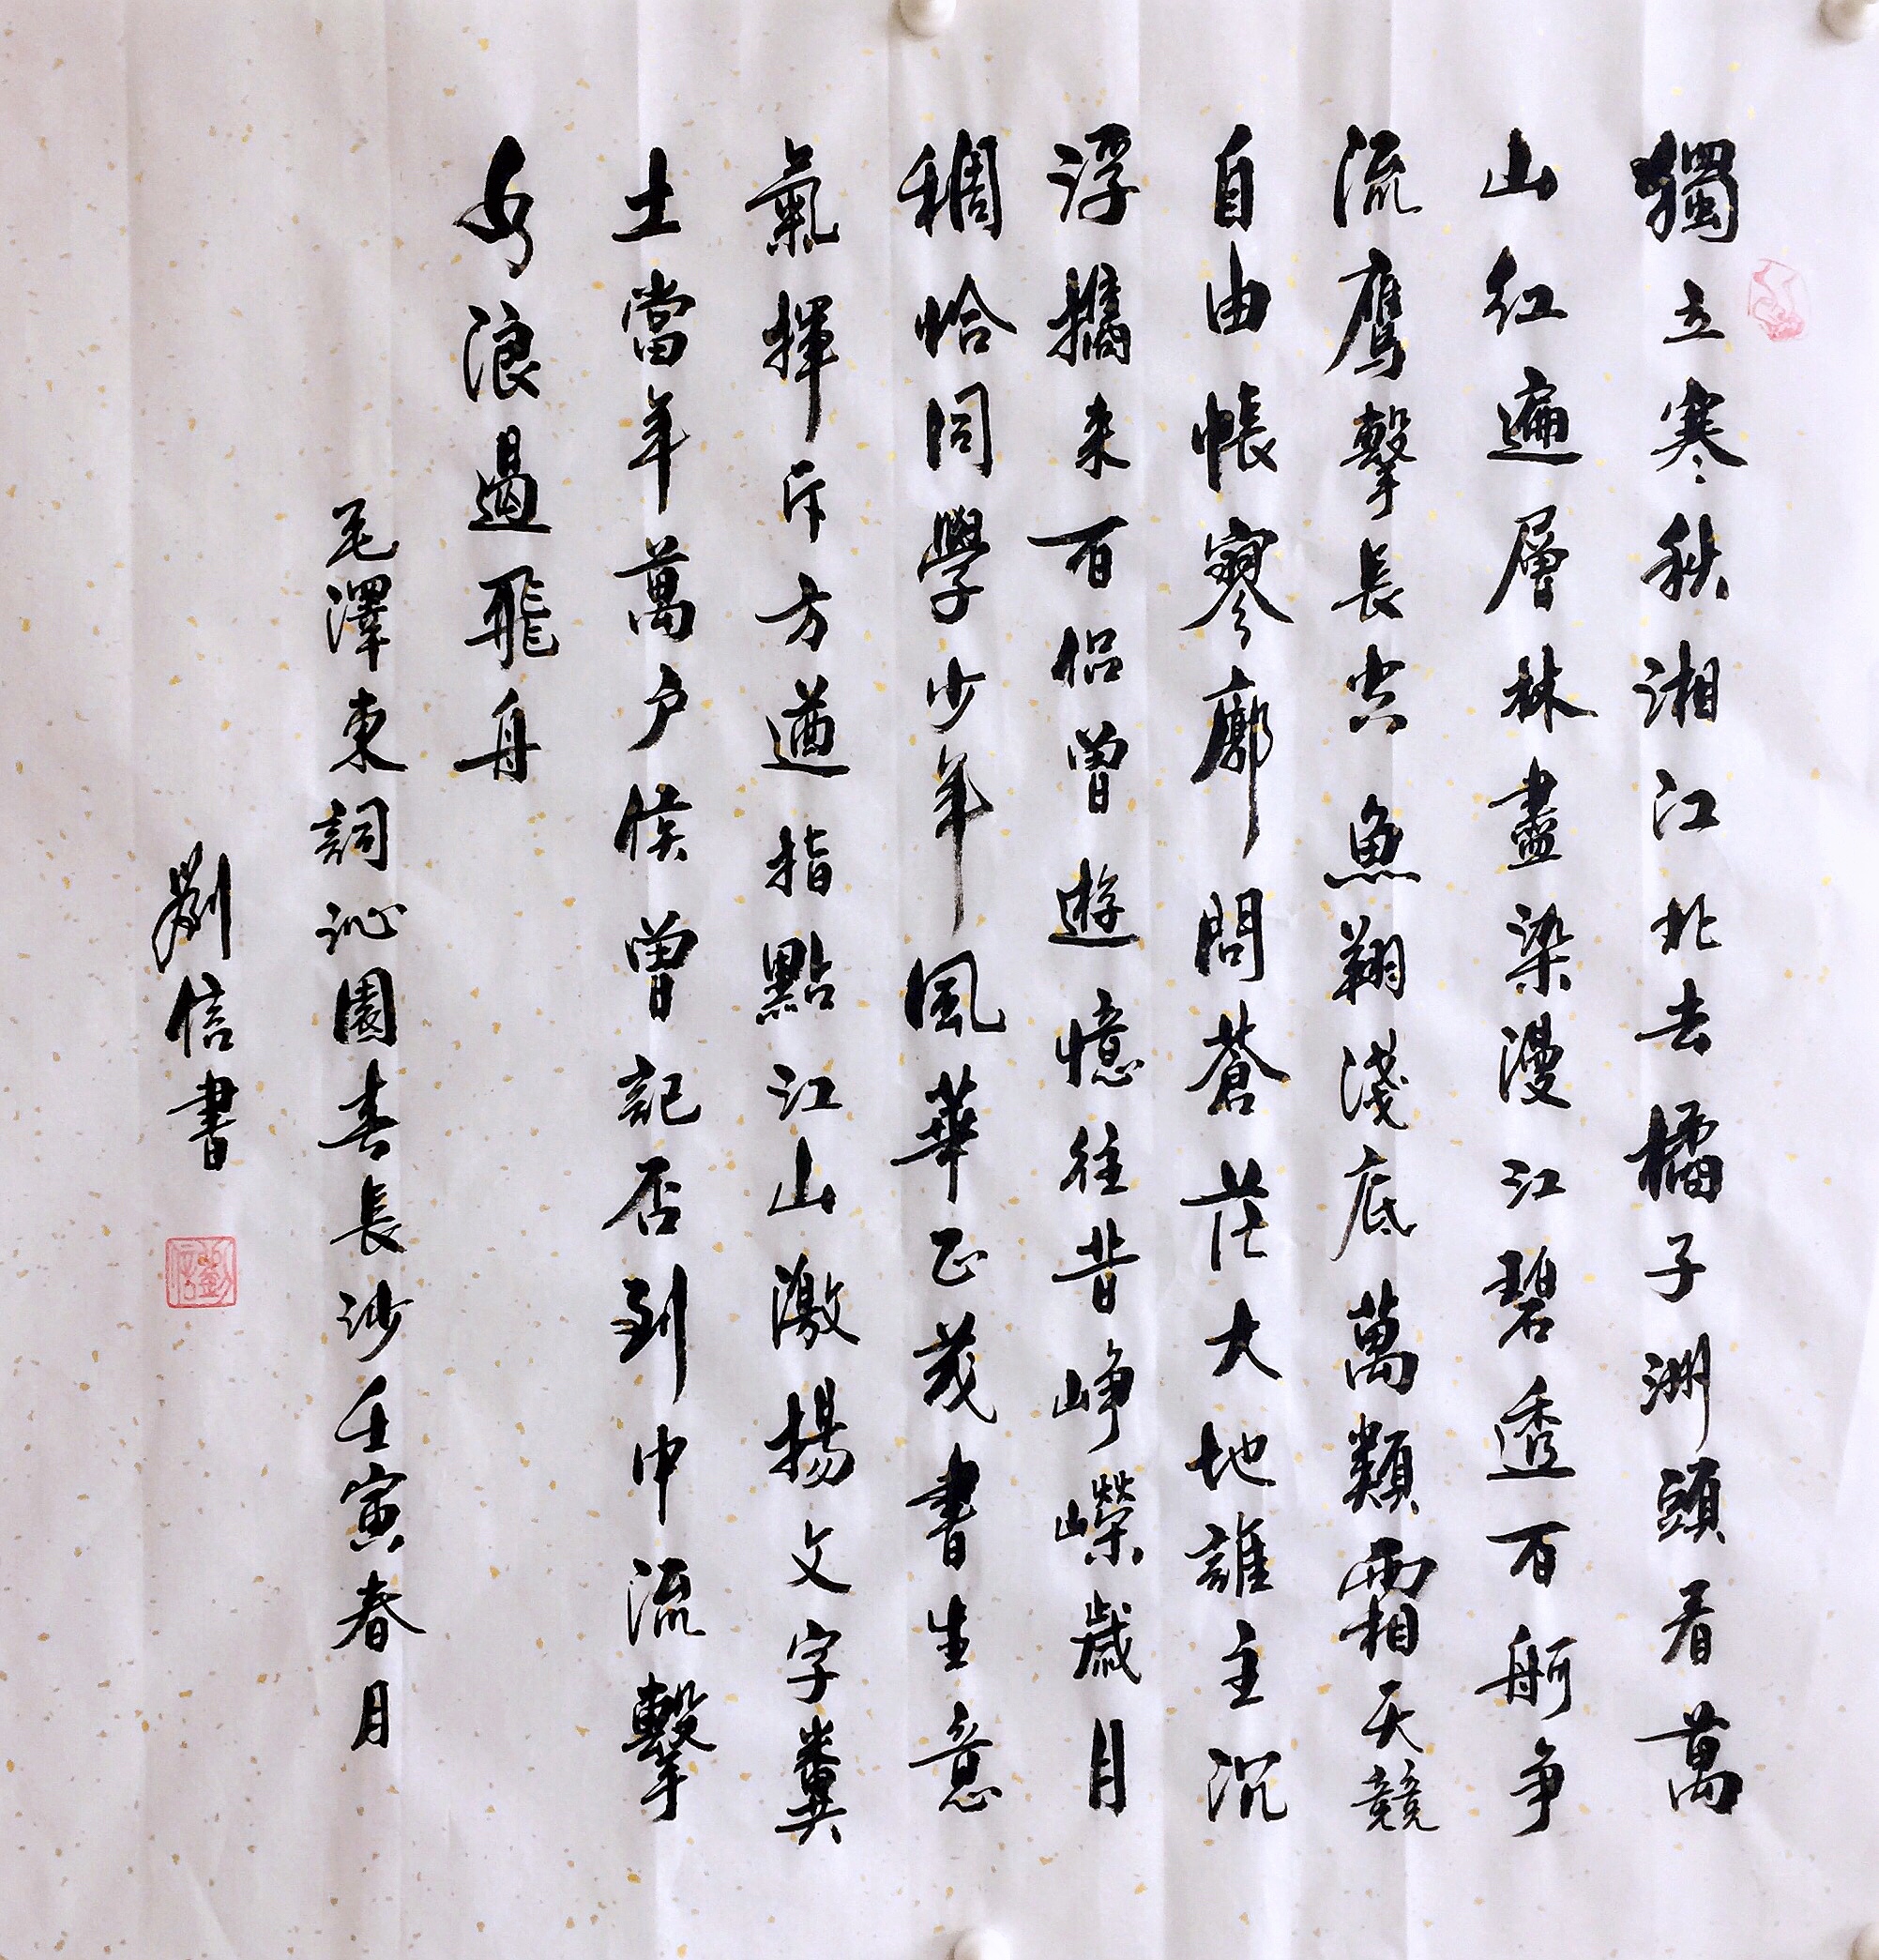 獨立寒秋湘江北去橘子洲頭看萬
山红遍層林盡染漫江碧透百舸争
流鷹擊長空魚翔淺底萬類霜天競
自由悵寥廓問蒼茫大地誰主沉
浮攜来百侣曾遊憶往昔崢嶸歲月
稠恰同學少年風華正茂書生意
氣揮斥方遒指點江山激揚文字糞
土當年萬户侯曾記否到中流擊
水浪遏飛舟
毛澤東詞沁園春長沙壬寅春月
劉信書